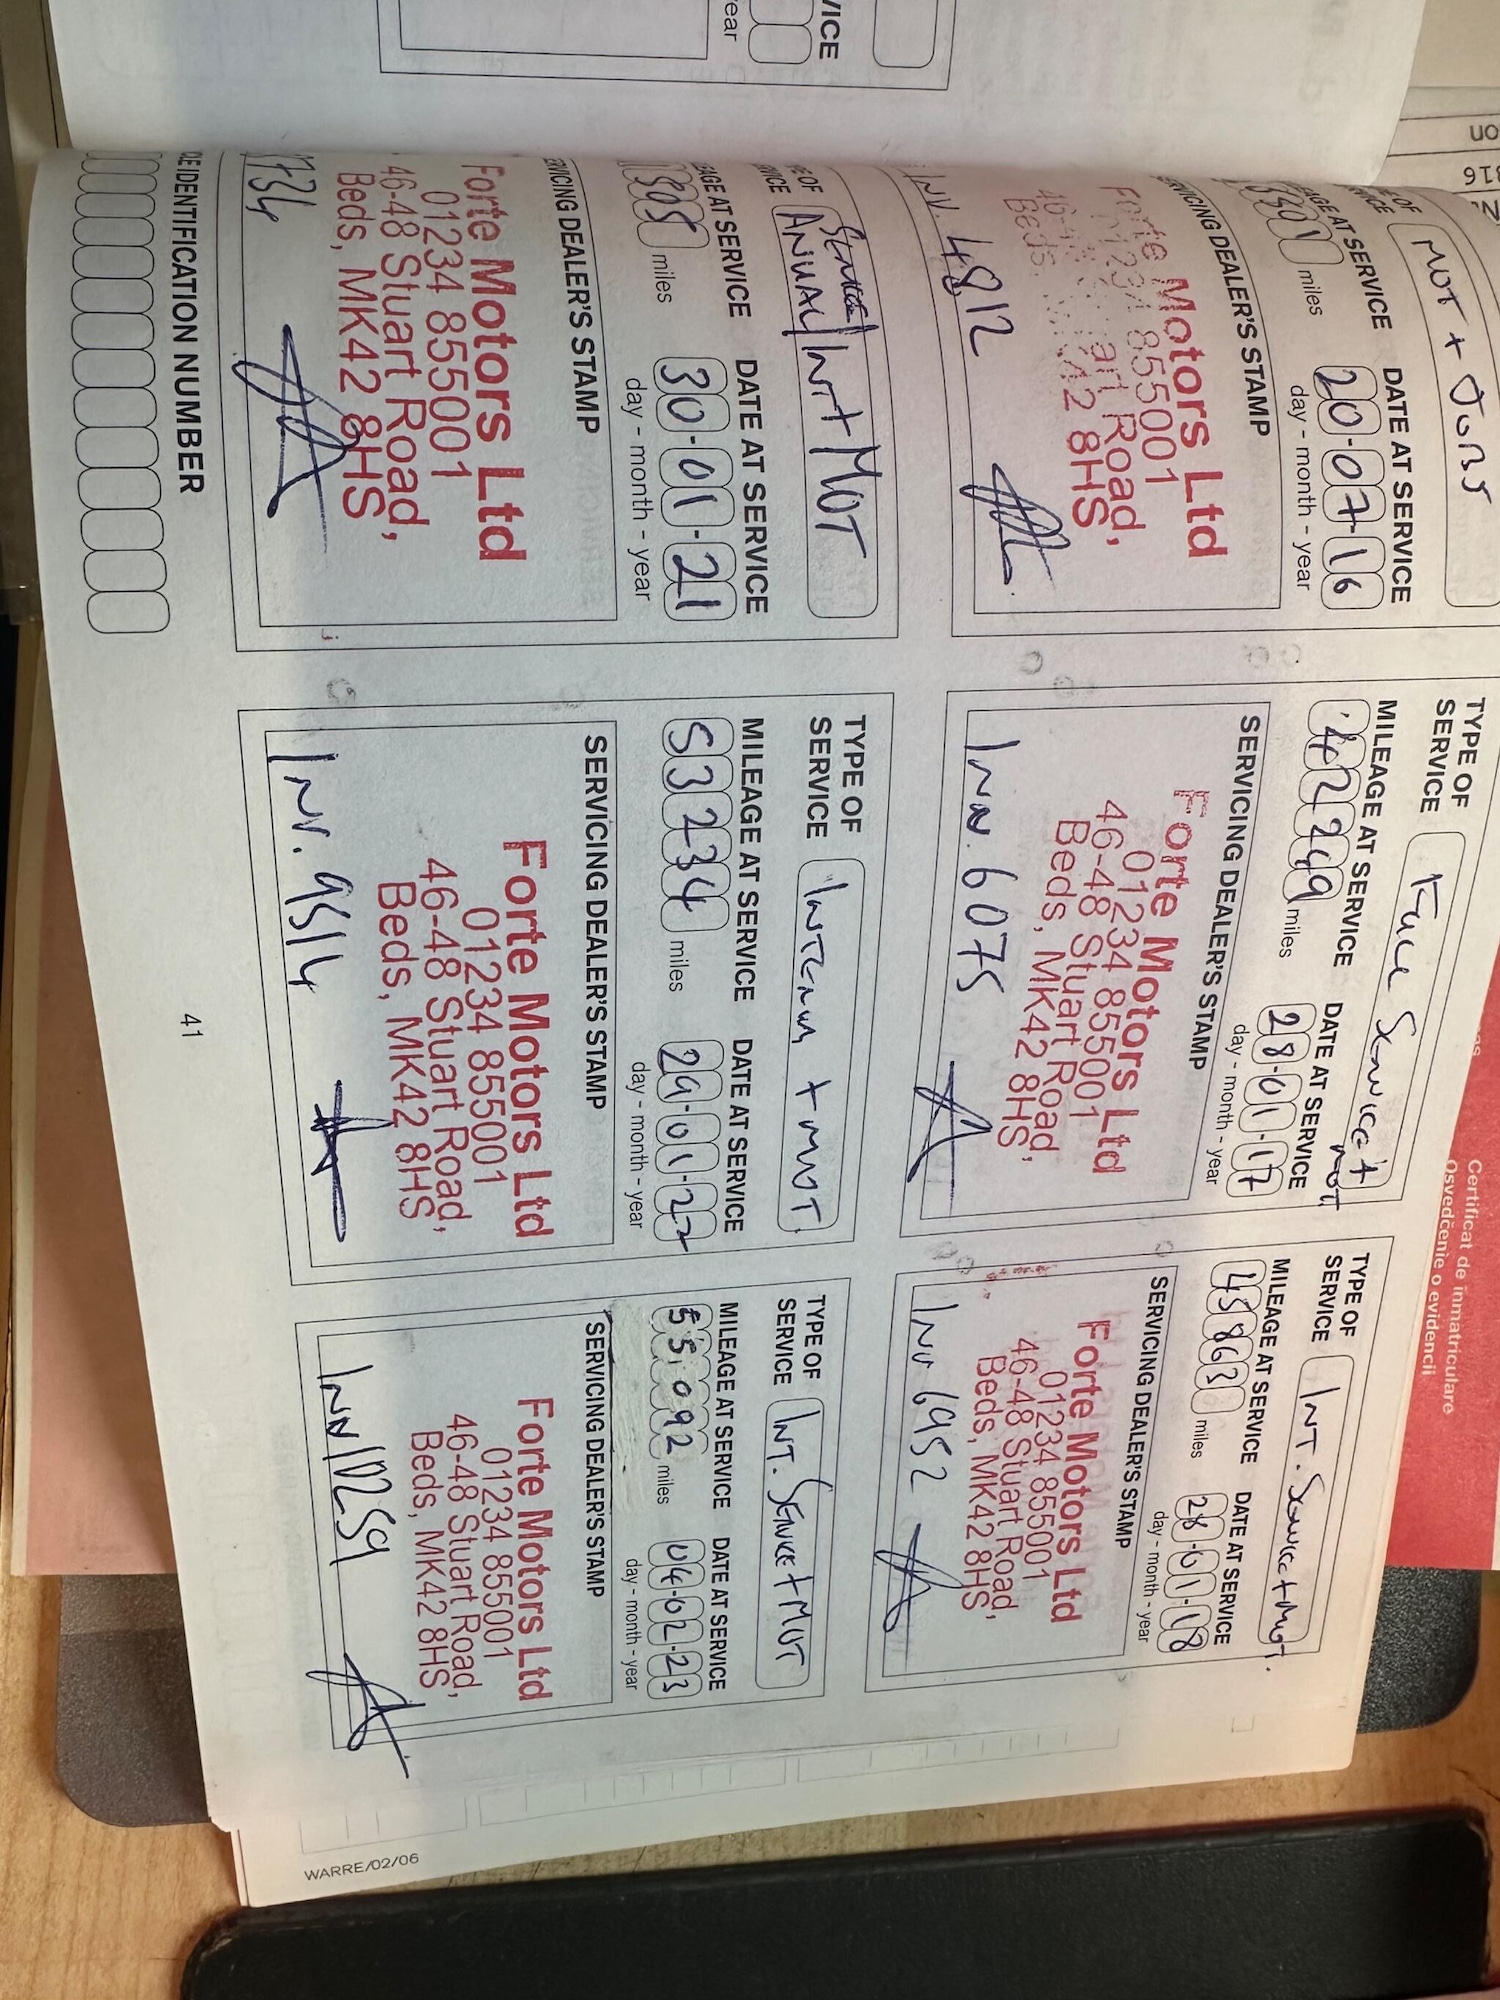 VICE
ear
MOT + JOBS
MILEAGE AT SERVICE
DATE AT SERVICE
miles
20-07-16
day - month - year
SERVICING DEALER'S STAMP
Forte Motors Ltd
01234 855001
Road,
Beds, MK42 8HS
INV. 4812
TYPE OF
SERVICE
Full Service +
MOT
MILEAGE AT SERVICE
DATE AT SERVICE
42249 miles
28-01-17
day - month - year
SERVICING DEALER'S STAMP
Forte Motors Ltd
01234 855001
46-48 Stuart Road,
Beds, MK42 8HS
Inv. 6075
TYPE OF
SERVICE
INT. Service + MOT.
MILEAGE AT SERVICE
DATE AT SERVICE
45863 miles
28-01-18
day - month - year
SERVICING DEALER'S STAMP
Forte Motors Ltd
01234 855001
46-48 Stuart Road,
Beds, MK42 8HS
Inv 6952
E OF
VICE
Service/
ANUAL/Int + MOT
AGE AT SERVICE
DATE AT SERVICE
miles
30-01-21
day - month - year
RVICING DEALER'S STAMP
Forte Motors Ltd
01234 855001
46-48 Stuart Road,
Beds, MK42 8HS
TYPE OF
SERVICE
Interim + MOT.
MILEAGE AT SERVICE
DATE AT SERVICE
53234 miles
29-01-22
day - month - year
SERVICING DEALER'S STAMP
Forte Motors Ltd
01234 855001
46-48 Stuart Road,
Beds, MK42 8HS
Inv. 9514
TYPE OF
SERVICE
INT. Service + MOT
MILEAGE AT SERVICE
DATE AT SERVICE
55,092 miles
04-02-23
day - month - year
SERVICING DEALER'S STAMP
Forte Motors Ltd
01234 855001
46-48 Stuart Road,
Beds, MK42 8HS
Inv 10259
LE IDENTIFICATION NUMBER
41
WARRE/02/06
Certificat de înmatriculare
Osvedčenie o evidencii